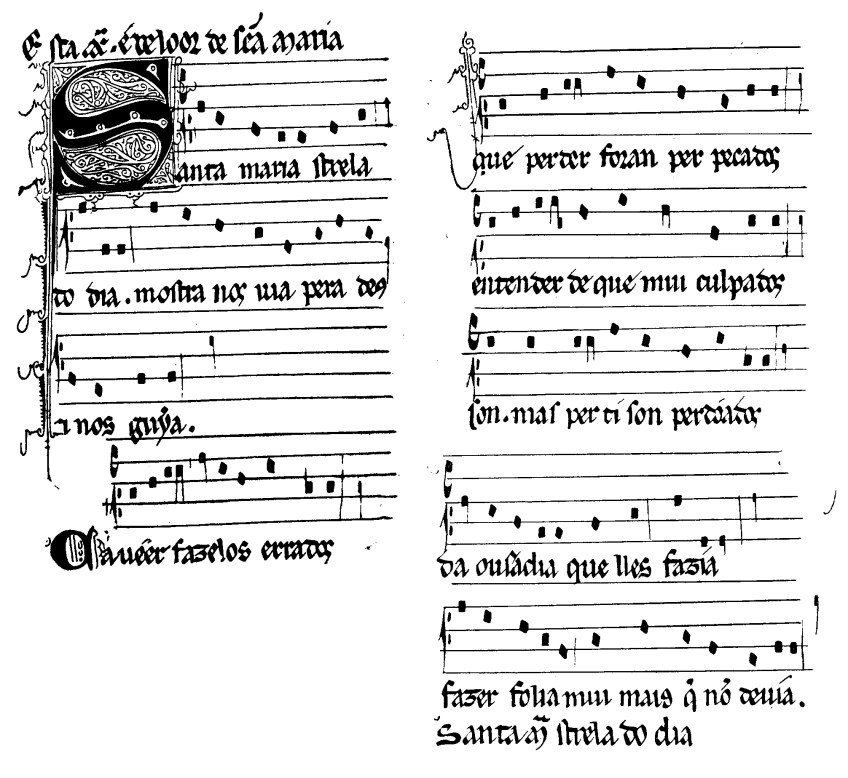 Esta xͣ. é de loor de sc̃a maria
Santa maria strela
do dia. mostra nos uia pera deꝰ
z nos guýa.
Ca ueer fazelos errados
que perder foran per pecados
entender de que mui culpados
son. mas per ti son perdõados
da ousadia que lles fazia
fazer folia mui mais q̃ nõ deuia.
Santa mͣ strela do dia